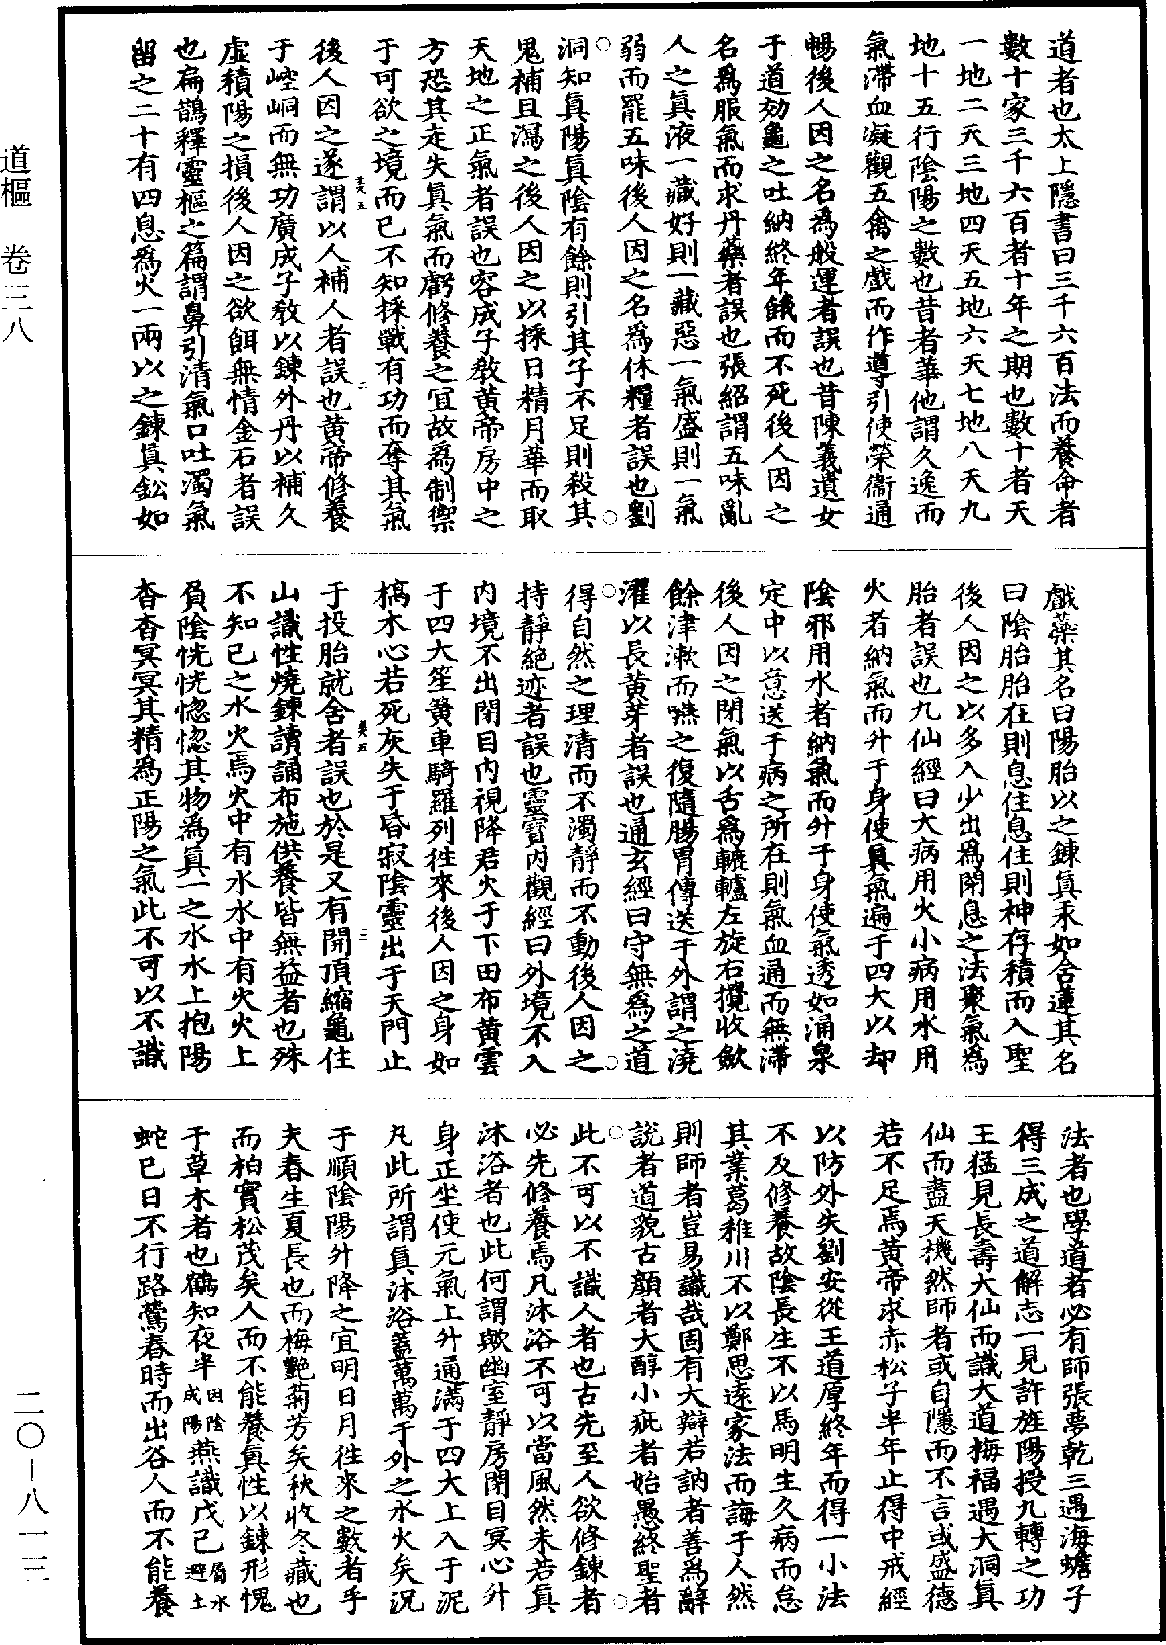 道樞　卷三八
二〇-八一三
道者也太上隱書曰三千六百法而養命者
數十家三千六百者十年之期也數十者天
一地二天三地四天五地六天七地八天九
地十五行陰陽之數也昔者華佗謂久逸而
氣滯血凝觀五禽之戲而作導引使榮衞通
暢後人因之名為般運者誤也昔陳義遺女
于道効龜之吐納終年餓而不死後人因之
名為服氣而求丹藥者誤也張紹謂五味亂
人之真液一藏好則一藏惡一氣盛則一氣
弱而罷五味後人因之名為休糧者誤也劉
洞知真陽真陰有餘則引其子不足則殺其
鬼補且瀉之後人因之以採日精月華而取
天地之正氣者誤也容成子教黃帝房中之
方恐其走失真氣而虧修養之宜故為制禦
于可欲之境而已不知採戰有功而奪其氣
後人因之遂謂以人補人者誤也黃帝修養
于崆峒而無功廣成子教以鍊外丹以補久
虛積陽之損後人因之欲餌無情金石者誤
也扁鵲釋靈樞之篇謂鼻引清氣口吐濁氣
留之二十有四息為火一兩以之鍊真鈆如
戲藥其名曰陽胎以之鍊真汞如含蓮其名
曰陰胎胎在則息住息住則神存積而入聖
後人因之以多入少出為閉息之法聚氣為
胎者誤也九仙經曰大病用火小病用水用
火者納氣而升于身使真氣遍于四大以却
陰邪用水者納氣而升于身使氣透如涌泉
定中以意送于病之所在則氣血通而無滯
後人因之閉氣以舌為轆轤左旋右攪收斂
餘津漱而嚥之復隨腸胃傳送于外謂之澆
濯以長黃芽者誤也通玄經曰守無為之道
得自然之理清而不濁靜而不動後人因之
持靜絕迹者誤也靈寶內觀經曰外境不入
內境不出閉目內視降君火于下田布黃雲
于四大笙簧車騎羅列徃來後人因之身如
槁木心若死灰失于昏寂陰靈出于天門止
于投胎就舍者誤也於是又有開頂縮龜住
山識性燒鍊讀誦布施供養皆無益者也殊
不知己之水火焉火中有水水中有火火上
負陰恍恍惚惚其物為真一之水水上抱陽
杳杳冥冥其精為正陽之氣此不可以不識
法者也學道者必有師張夢乾三遇海蟾子
得三成之道解志一見許旌陽授九轉之功
王猛見長壽大仙而識大道梅福遇大洞真
仙而盡天機然師者或自隱而不言或盛德
若不足焉黃帝求赤松子半年止得中戒經
以防外失劉安從王道厚終年而得一小法
不及修養故陰長生不以馬明生久病而怠
其業葛稚川不以鄭思遠家法而誨于人然
則師者豈易識哉固有大辯若訥者善為辭
說者道貌古顏者大醇小疵者始愚終聖者
此不可以不識人者也古先至人欲修鍊者
必先修養焉凡沐浴不可以當風然未若真
沐浴者也此何謂歟幽室靜房閉目冥心升
身正坐使元氣上升通滿于四大上入于泥
凡此所謂真沐浴蓋萬萬于外之水火矣況
于順陰陽升降之宜明日月徃來之數者乎
夫春生夏長也而梅艷菊芳矣秋收冬藏也
而柏實松茂矣人而不能養真性以鍊形愧
于草木者也鶴知夜半因陰成陽燕識戊己屬水避土
蛇巳日不行路鶯春時而出谷人而不能養